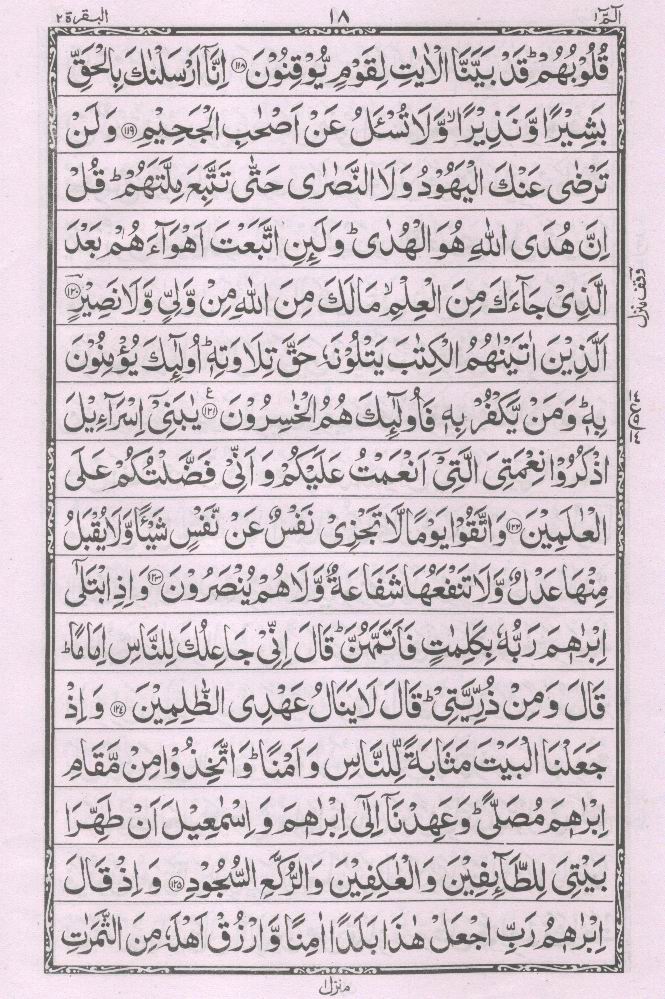 الٓمّٓ ١ ١٨ البقرة ٢
قُلُوۡبُهُمۡ ؕ قَدۡ بَيَّنَّا الۡاٰيٰتِ لِقَوۡمٍ يُّوۡقِنُوۡنَ ﴿۱۱۸﴾ اِنَّاۤ اَرۡسَلۡنٰكَ بِالۡحَقِّ
بَشِيۡرًا وَّنَذِيۡرًا ۙ وَّلَا تُسۡـَٔلُ عَنۡ اَصۡحٰبِ الۡجَحِيۡمِ ﴿۱۱۹﴾ وَلَنۡ
تَرۡضٰى عَنۡكَ الۡيَهُوۡدُ وَلَا النَّصٰرٰى حَتّٰى تَتَّبِعَ مِلَّتَهُمۡ ؕ قُلۡ
اِنَّ هُدَى اللّٰهِ هُوَ الۡهُدٰى ؕ وَلَٮِٕنِ اتَّبَعۡتَ اَهۡوَآءَهُمۡ بَعۡدَ
الَّذِىۡ جَآءَكَ مِنَ الۡعِلۡمِ ۙ مَا لَكَ مِنَ اللّٰهِ مِنۡ وَّلِىٍّ وَّلَا نَصِيۡرٍ ﴿۱۲۰﴾
وقف منزل
اَلَّذِيۡنَ اٰتَيۡنٰهُمُ الۡكِتٰبَ يَتۡلُوۡنَهٗ حَقَّ تِلَاوَتِهٖ ؕ اُولٰٓٮِٕكَ يُؤۡمِنُوۡنَ
بِهٖ ؕ وَمَنۡ يَّكۡفُرۡ بِهٖ فَاُولٰٓٮِٕكَ هُمُ الۡخٰسِرُوۡنَ ﴿۱۲۱﴾ ع يٰبَنِىۡٓ اِسۡرَآءِيۡلَ
اذۡكُرُوۡا نِعۡمَتِىَ الَّتِىۡٓ اَنۡعَمۡتُ عَلَيۡكُمۡ وَاَنِّىۡ فَضَّلۡتُكُمۡ عَلَى
الۡعٰلَمِيۡنَ ﴿۱۲۲﴾ وَاتَّقُوۡا يَوۡمًا لَّا تَجۡزِىۡ نَفۡسٌ عَنۡ نَّفۡسٍ شَيۡـًٔا وَّلَا يُقۡبَلُ
مِنۡهَا عَدۡلٌ وَّلَا تَنۡفَعُهَا شَفَاعَةٌ وَّلَا هُمۡ يُنۡصَرُوۡنَ ﴿۱۲۳﴾ وَاِذِ ابۡتَلٰٓى
اِبۡرٰهٖمَ رَبُّهٗ بِكَلِمٰتٍ فَاَتَمَّهُنَّ ؕ قَالَ اِنِّىۡ جَاعِلُكَ لِلنَّاسِ اِمَامًا ؕ
قَالَ وَمِنۡ ذُرِّيَّتِىۡ ؕ قَالَ لَا يَنَالُ عَهۡدِى الظّٰلِمِيۡنَ ﴿۱۲۴﴾ وَاِذۡ
جَعَلۡنَا الۡبَيۡتَ مَثَابَةً لِّلنَّاسِ وَاَمۡنًا ؕ وَاتَّخِذُوۡا مِنۡ مَّقَامِ
اِبۡرٰهٖمَ مُصَلًّى ؕ وَعَهِدۡنَآ اِلٰٓى اِبۡرٰهٖمَ وَاِسۡمٰعِيۡلَ اَنۡ طَهِّرَا
بَيۡتِىَ لِلطَّآٮِٕفِيۡنَ وَالۡعٰكِفِيۡنَ وَالرُّكَّعِ السُّجُوۡدِ ﴿۱۲۵﴾ وَاِذۡ قَالَ
اِبۡرٰهٖمُ رَبِّ اجۡعَلۡ هٰذَا بَلَدًا اٰمِنًا وَّارۡزُقۡ اَهۡلَهٗ مِنَ الثَّمَرٰتِ
منزل ١